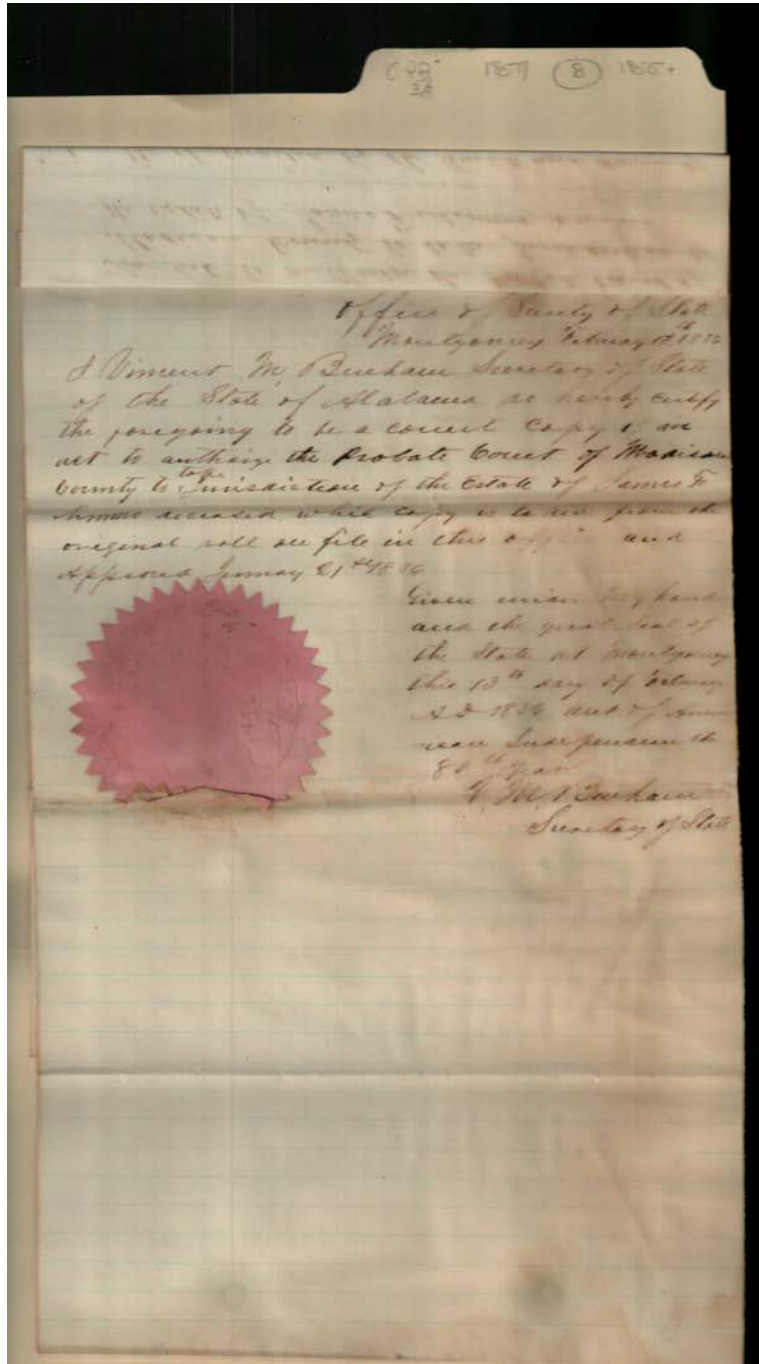 1857 8 1855+
Office of Secty of State
Montgomery February 13th 1856
I Vincent M, Benham Secretary of State
of the State of Alabama do hereby certify
the foregoing to be a correct Copy of an
act to authorize the Probate Court of Madison
County to take Jurisdiction of the Estate of James F
deceased which Copy is taken from the
original roll on file in this office and
Approved January 21st 1856
Given under my hand
and the great Seal of
the State at Montgomery
this 13th day of February
A D 1856 and of Amer
ican Independence the
80th Year
V. M. Benham
Secretary of State